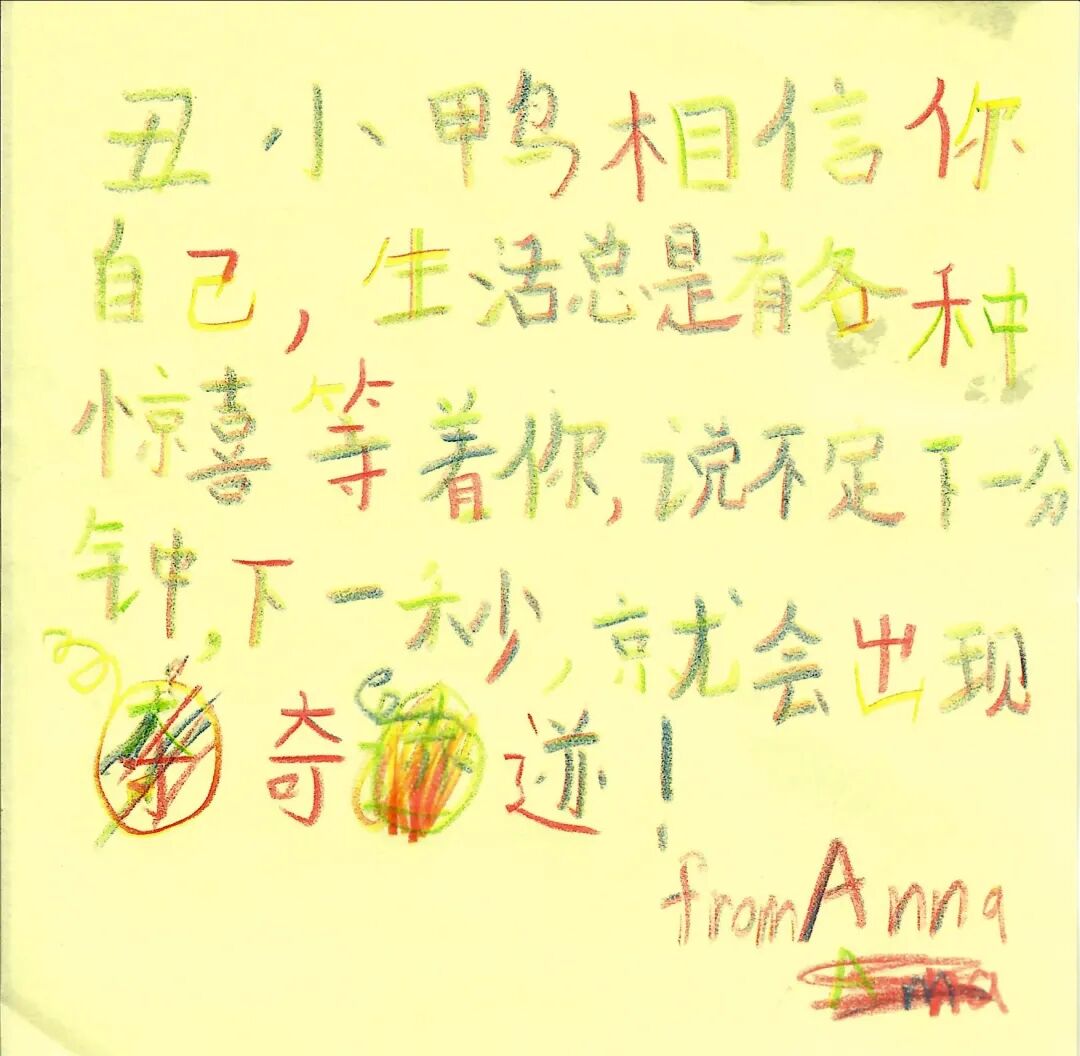 丑小鸭相信你
自己，生活总是有各种
惊喜等着你，说不定下一分
钟，下一秒，就会出现
奇迹！
from Anna